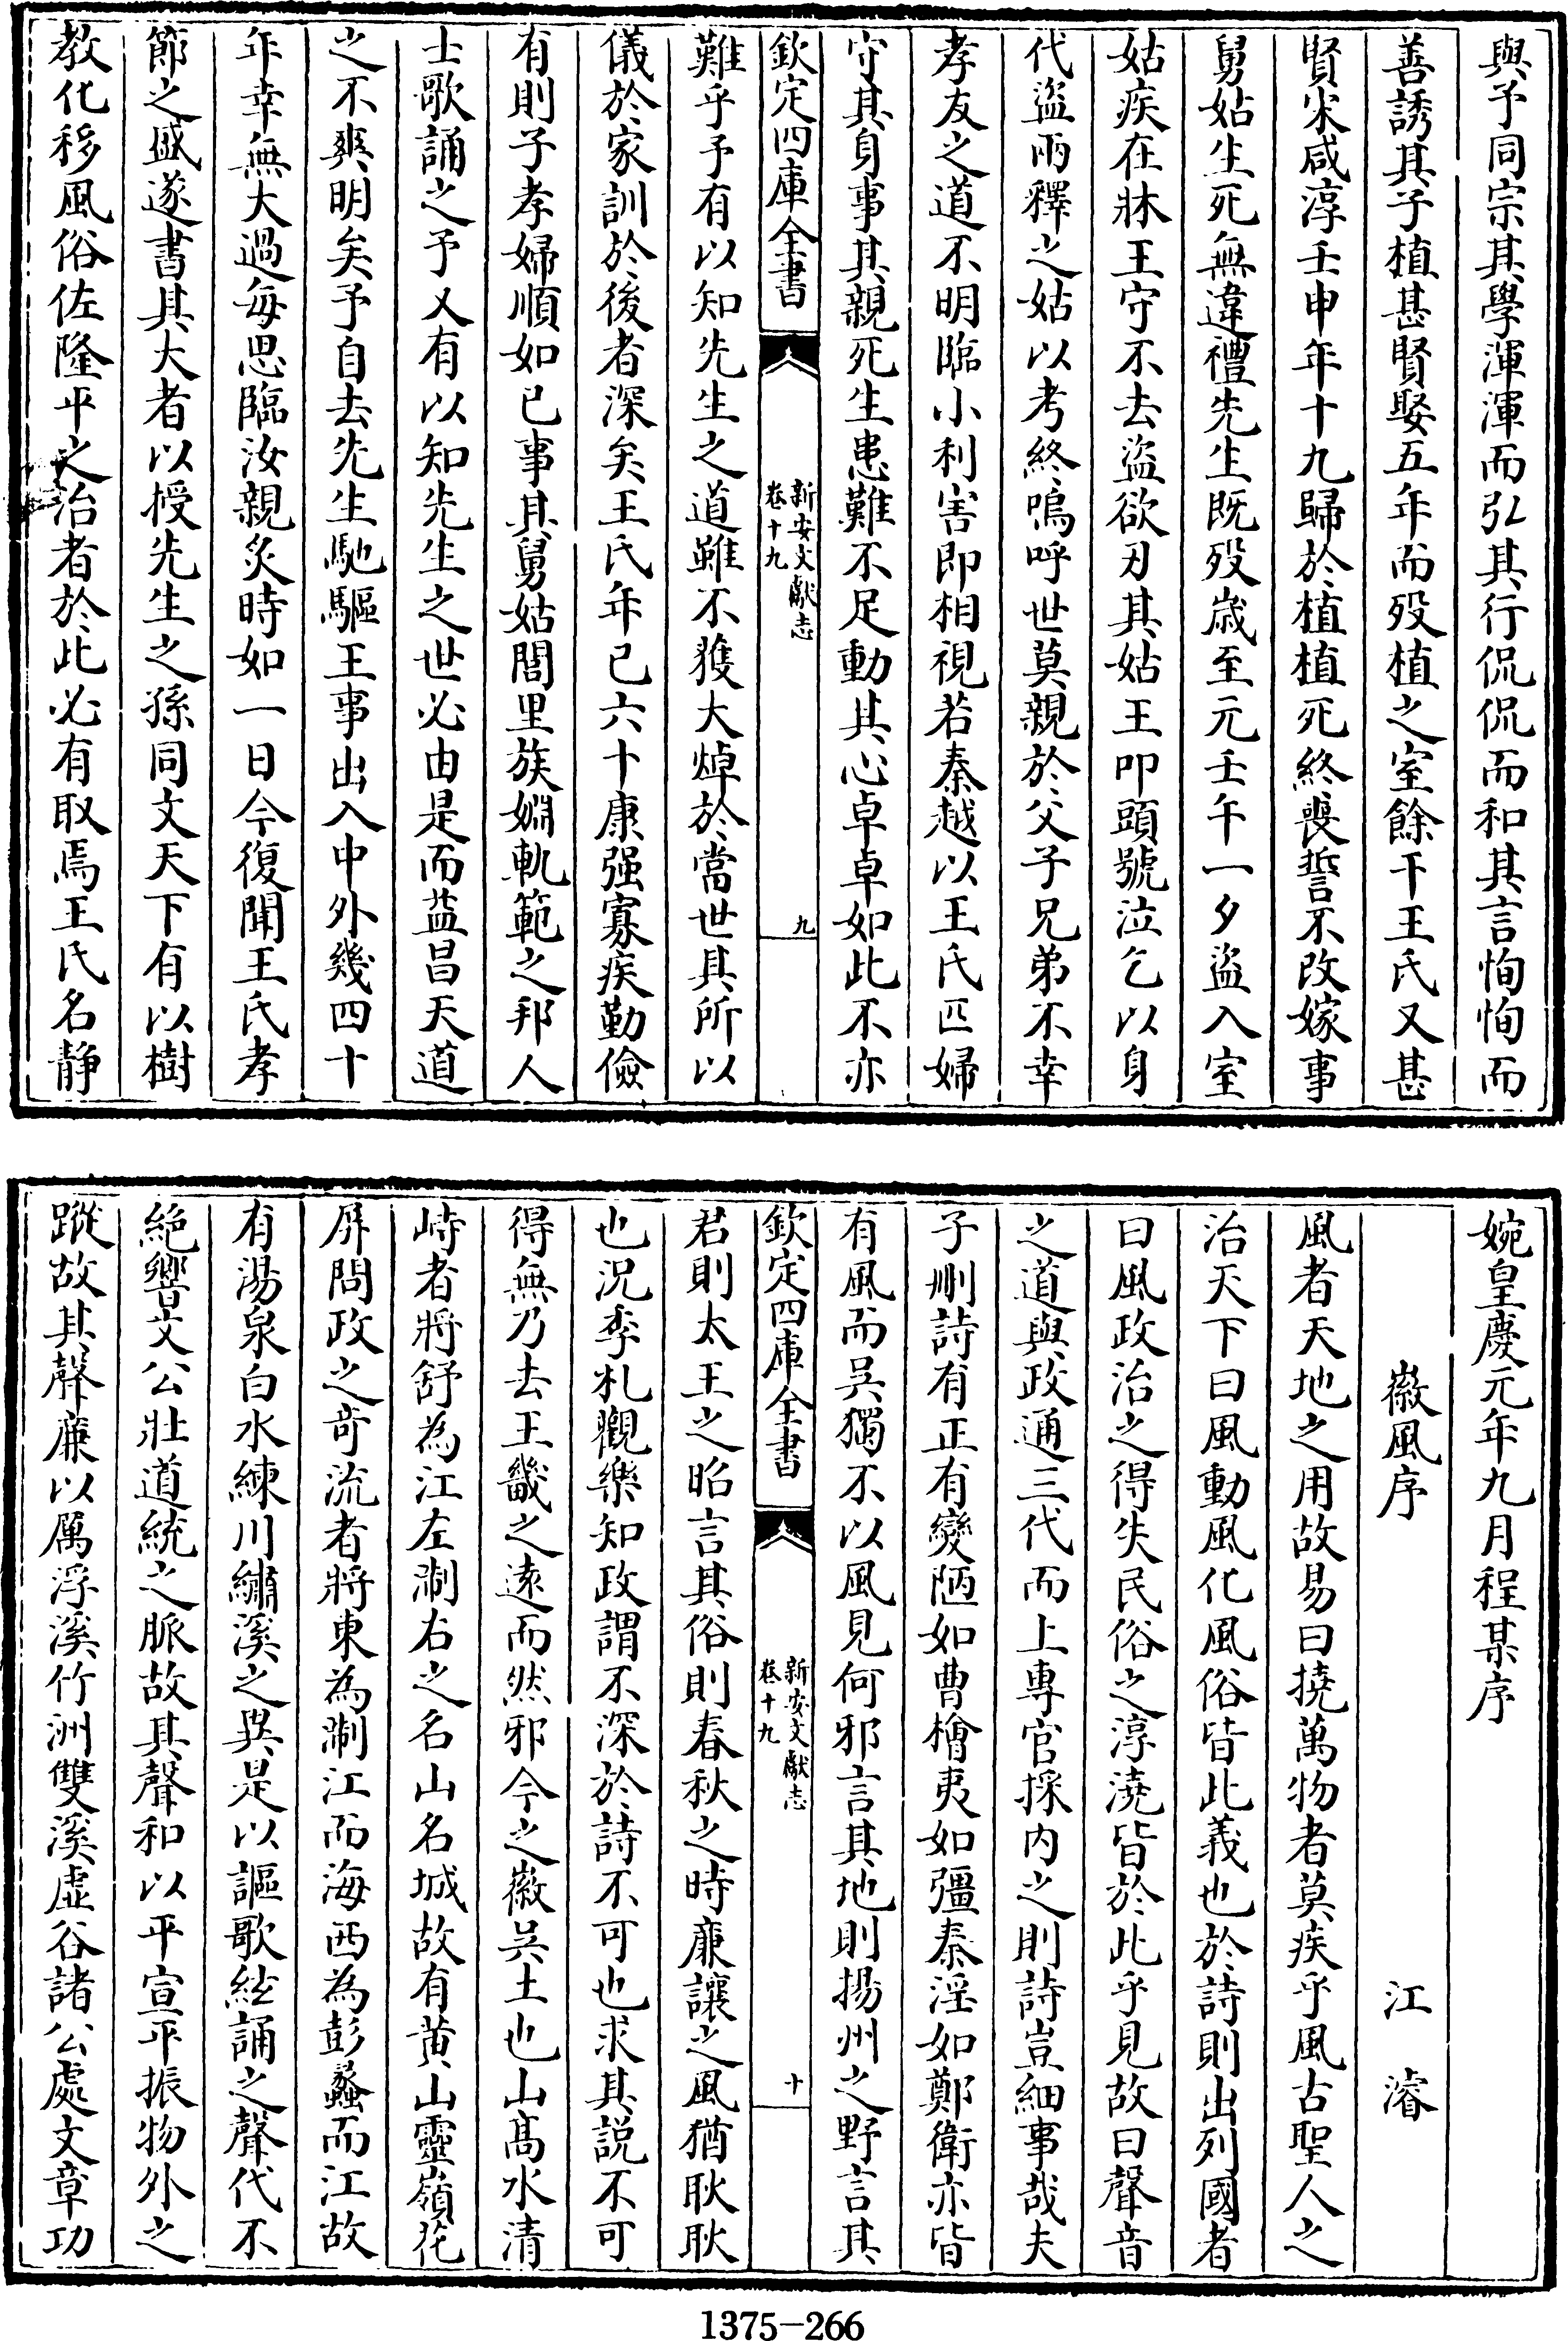 與予同宗其學渾渾而弘其行侃侃而和其言恂恂而
善誘其子植甚賢娶五年而歿植之室餘干王氏又甚
賢宋咸淳壬申年十九歸於植植死終喪誓不改嫁事
舅姑生死無違禮先生既歿嵗至元壬午一夕盜入室
姑疾在牀王守不去盜欲刃其姑王叩頭號泣乞以身
代盜兩釋之姑以考終嗚呼世莫親於父子兄弟不幸
孝友之道不明臨小利害即相視若秦越以王氏匹婦
守其身事其親死生患難不足動其心卓卓如此不亦
欽定四庫全書
新安文獻志
卷十九
九
難乎予有以知先生之道雖不獲大焯於當世其所以
儀於家訓於後者深矣王氏年已六十康强寡疾勤儉
有則子孝婦順如已事其舅姑閭里族婣軌範之邦人
士歌誦之予乂有以知先生之世必由是而益昌天道
之不爽明矣予自去先生馳驅王事出入中外幾四十
年幸無大過每思臨汝親炙時如一日今復聞王氏孝
節之盛遂書其大者以授先生之孫同文天下有以樹
教化移風俗佐隆平之治者於此必有取焉王氏名静
婉皇慶元年九月程某序
徽風序　江濬
風者天地之用故易曰撓萬物者莫疾乎風古聖人之
治天下曰風動風化風俗皆此義也於詩則出列國者
曰風政治之得失民俗之淳澆皆於此乎見故曰聲音
之道與政通三代而上專官採内之則詩豈細事哉夫
子刪詩有正有變陋如曹檜夷如彊秦淫如鄭衛亦皆
有風而吳獨不以風見何邪言其地則揚州之野言其
欽定四庫全書
新安文獻志
卷十九
十
君則太王之昭言其俗則春秋之時亷讓之風猶耿耿
也況季札觀樂知政謂不深於詩不可也求其説不可
得無乃去王畿之遠而然邪今之徽吳土也山髙水清
峙者將舒為江左淛右之名山名城故有黄山靈嶺花
屏問政之奇流者將東為淛江而海西為彭蠡而江故
有湯泉白水練川繡溪之異是以謳歌絃誦之聲代不
絶響文公壯道統之脈故其聲和以平宣平振物外之
蹤故其聲亷以厲浮溪竹洲雙溪虚谷諸公處文章功
1375-266